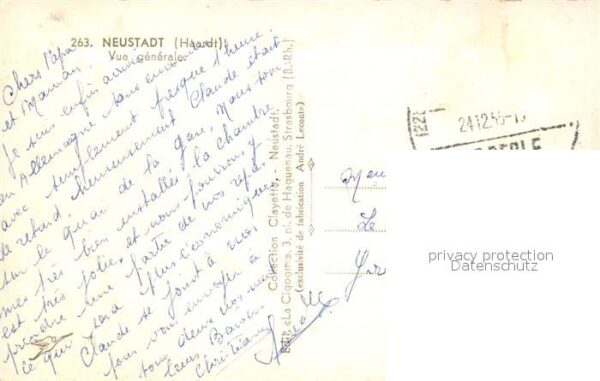 263. NEUSTADT (Haardt)
Vue générale.
Chers Papa
et Maman.
Je suis enfin arrivée
en Allemagne sans encombre
avec simplement presque 1 heure
de retard. heureusement Claude était
sur le quai de la gare. Nous som
mes très bien installés la chambre
est très jolie et nous pourrons y
prendre une partie de nos repas
ce qui sera plus économique.
Claude se joint à moi
pour vous envoyer à
tous deux nos meil
leurs Baisers
Christiane
Collection Clayette. - Neustadt.
Edit. «La Cigogne», 3, pl. de Haguenau, Strasbourg (B.-Rh.)
(exclusivité de fabrication André Leconte)
24.12.55
privacy protection
Datenschutz